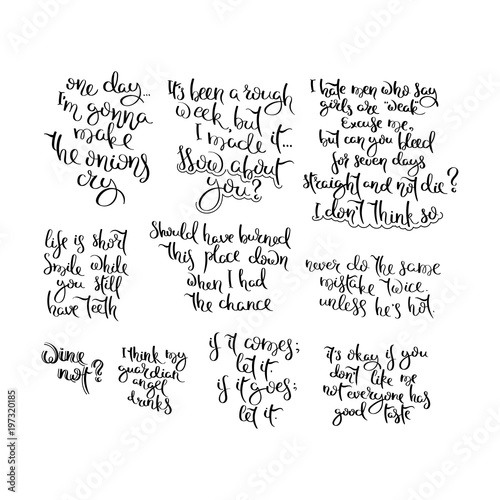 one day...
I'm gonna
make
the onions
cry
It's been a rough
week, but
I made it...
How about
you?
I hate men who say
girls are "weak"
Excuse me,
but can you bleed
for seven days
straight and not die?
I don't think so
life is short
smile while
you still
have teeth
Should have burned
this place down
when I had
the chance
never do the same
mistake twice.
unless he's hot.
Wine
not?
I think my
guardian
angel
drinks
if it comes;
let it.
if it goes;
let it.
it's okay if you
don't like me
not everyone has
good taste
Adobe Stock
#197320185